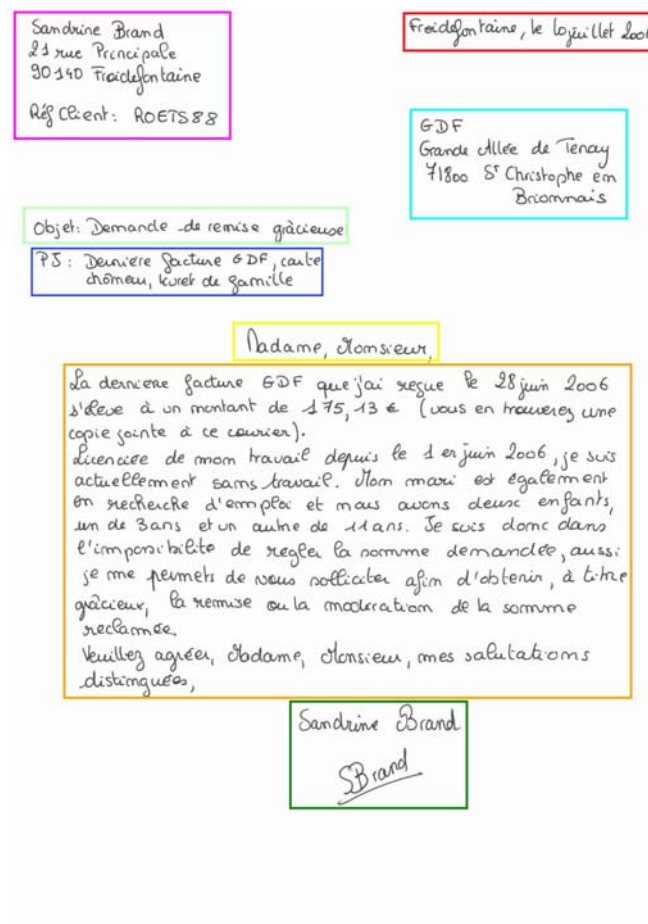 Sandrine Brand
21 rue Principale
90140 Froidefontaine
Réf Client : ROETS88
Froidefontaine, le 10 juillet 2006
GDF
Grande Allée de Tenay
71800 St Christophe en
Brionnais
Objet : Demande de remise gràcieuse
PJ : Dernière facture GDF, carte
chômeur, livret de famille
Madame, Monsieur,
La derniere facture GDF que j'ai reçue le 28 juin 2006
s'éleve à un montant de 175,13 € (vous en trouverez une
copie jointe à ce courier).
Licenciée de mon travail depuis le 1er juin 2006, je suis
actuellement sans travail. Mon mari est également
en recherche d'emploi et nous avons deux enfants,
un de 3 ans et un autre de 11 ans. Je suis donc dans
l'impossibilité de régler la somme demandée, aussi
je me permets de vous solliciter afin d'obtenir, à titre
gràcieux, la remise ou la modération de la somme
reclamée.
Veuillez agréer, Madame, Monsieur, mes salutations
distinguées,
Sandrine Brand
SBrand